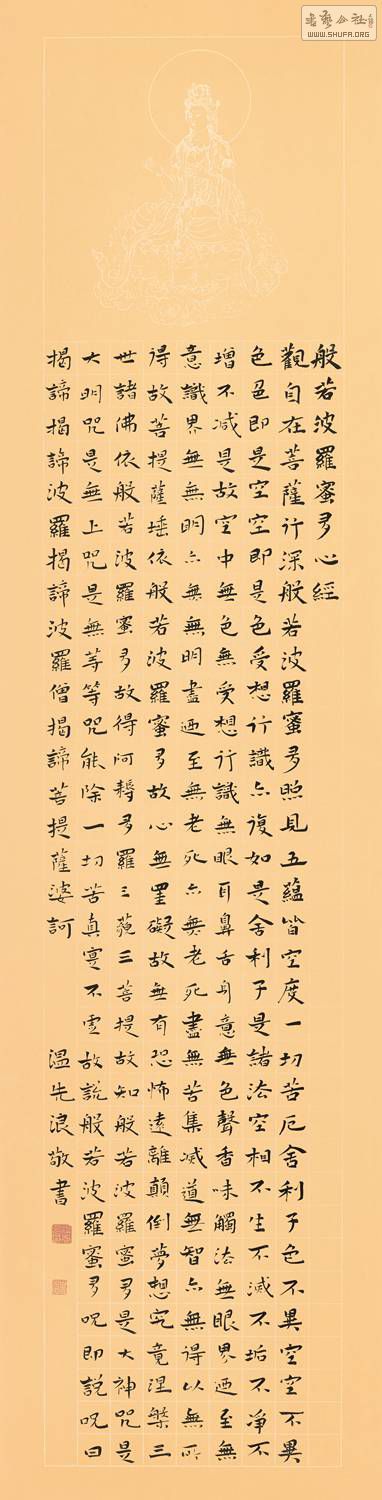 般若波羅蜜多心經
觀自在菩薩行深般若波羅蜜多照見五蘊皆空度一切苦厄舍利子色不異空空不異
色色即是空空即是色受想行識亦復如是舍利子是諸法空相不生不滅不垢不净不
增不减是故空中無色無受想行識無眼耳鼻舌身意無色聲香味觸法無眼界迺至無
意識界無無明亦無無明盡迺至無老死亦無老死盡無苦集滅道無智亦無得以無所
得故菩提薩埵依般若波羅蜜多故心無罣礙故無有恐怖遠離顛倒夢想究竟涅槃三
世諸佛依般若波羅蜜多故得阿耨多羅三藐三菩提故知般若波羅蜜多是大神咒是
大明咒是無上咒是無等等咒能除一切苦真實不虛故説般若波羅蜜多咒即説咒曰
揭諦揭諦波羅揭諦波羅僧揭諦菩提薩婆訶 溫先浪敬書
書藝公社
WWW.SHUFA.ORG